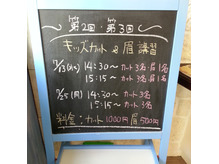 第2回・第3回
キッズカット & 眉 講習
7/13(水) 14:30～ カット3名 眉1名
15:15～ カット3名 眉1名
7/25(月) 14:30～ カット3名
15:15～ カット3名
料金:カット1000円 眉500円